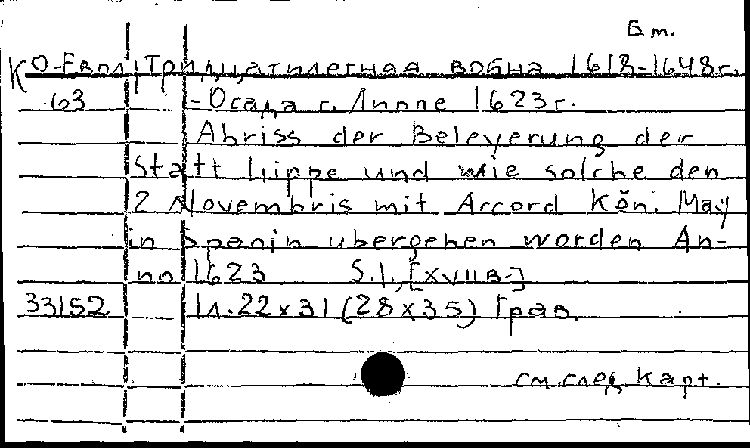 Б м.
К О-Европ, Тридцатилетняя война 1618-1648г.
63 - Осада г. Липпе 1623г.
Abriss der Beleyerung der
statt Lippe und wie solche den
2 Novembris mit Accord Kön. May
in Spanin ubergehen worden An-
no 1623 S.l., [XVIIв.]
33152 1л. 22x31 (28x35) Грав.
см. след. карт.